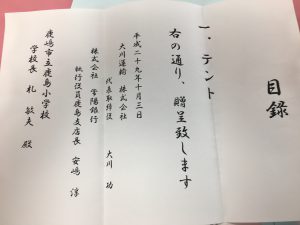 目録
一．テント
右の通り、贈呈致します
平成二十九年十月三日
大川運輸 株式会社
代表取締役 大川 功
株式会社 常陽銀行
執行役員鹿島支店長 安嶋 淳
鹿嶋市立鹿島小学校
学校長 札 敏夫 殿